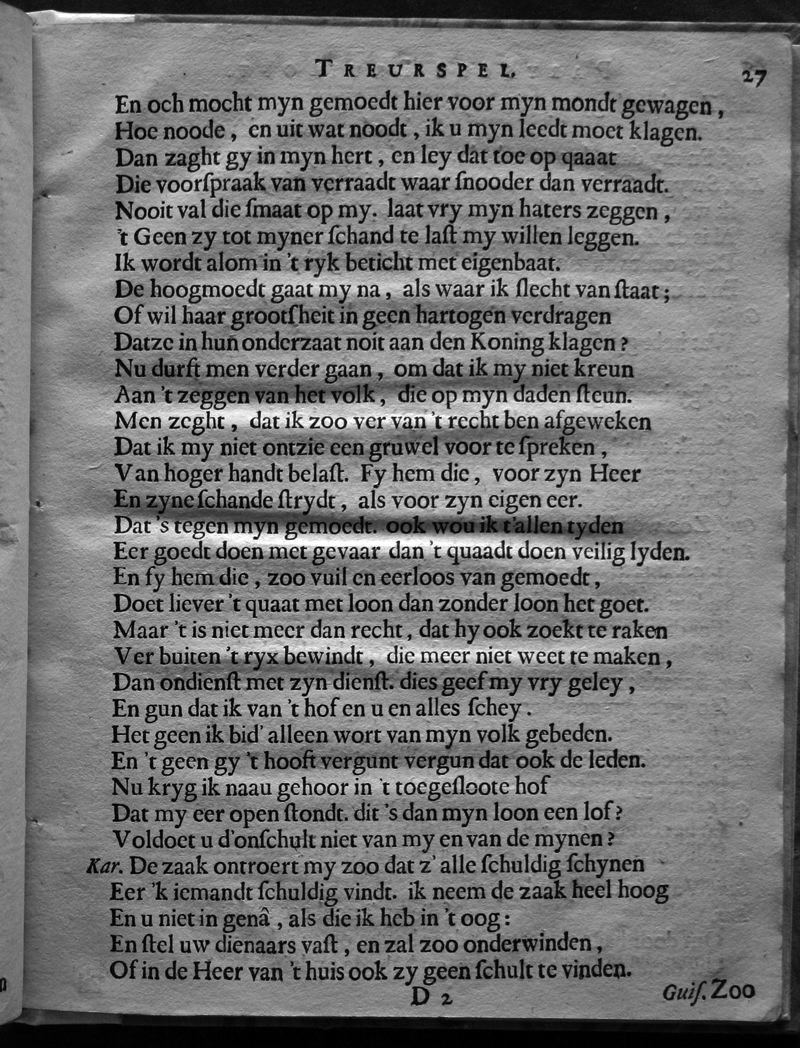 TREURSPEL. 27
En och mocht myn gemoedt hier voor myn mondt gewagen,
Hoe noode, en uit wat noodt, ik u myn leedt moet klagen.
Dan zaght gy in myn hert, en ley dat toe op qaaat
Die voorſpraak van verraadt waar ſnooder dan verraadt.
Nooit val die ſmaat op my. laat vry myn haters zeggen,
't Geen zy tot myner ſchand te laſt my willen leggen.
Ik wordt alom in 't ryk beticht met eigenbaat.
De hoogmoedt gaat my na, als waar ik ſlecht van ſtaat;
Of wil haar grootſheit in geen hartogen verdragen
Datze in hun onderzaat noit aan den Koning klagen?
Nu durft men verder gaan, om dat ik my niet kreun
Aan 't zeggen van het volk, die op myn daden ſteun.
Men zeght, dat ik zoo ver van 't recht ben afgeweken
Dat ik my niet ontzie een gruwel voor te ſpreken,
Van hoger handt belaſt. Fy hem die, voor zyn Heer
En zyne ſchande ſtrydt, als voor zyn eigen eer.
Dat 's tegen myn gemoedt. ook wou ik t'allen tyden
Eer goedt doen met gevaar dan 't quaadt doen veilig lyden.
En fy hem die, zoo vuil en eerloos van gemoedt,
Doet liever 't quaat met loon dan zonder loon het goet.
Maar 't is niet meer dan recht, dat hy ook zoekt te raken
Ver buiten 't ryx bewindt, die meer niet weet te maken,
Dan ondienſt met zyn dienſt. dies geef my vry geley,
En gun dat ik van 't hof en u en alles ſchey.
Het geen ik bid' alleen wort van myn volk gebeden.
En 't geen gy 't hooft vergunt vergun dat ook de leden.
Nu kryg ik naau gehoor in 't toegeſloote hof
Dat my eer open ſtondt. dit 's dan myn loon een lof?
Voldoet u d'onſchult niet van my en van de mynen?
Kar. De zaak ontroert my zoo dat z' alle ſchuldig ſchynen
Eer 'k iemandt ſchuldig vindt. ik neem de zaak heel hoog
En u niet in genâ, als die ik heb in 't oog:
En ſtel uw dienaars vaſt, en zal zoo onderwinden,
Of in de Heer van 't huis ook zy geen ſchult te vinden.
D 2 Guiſ. Zoo